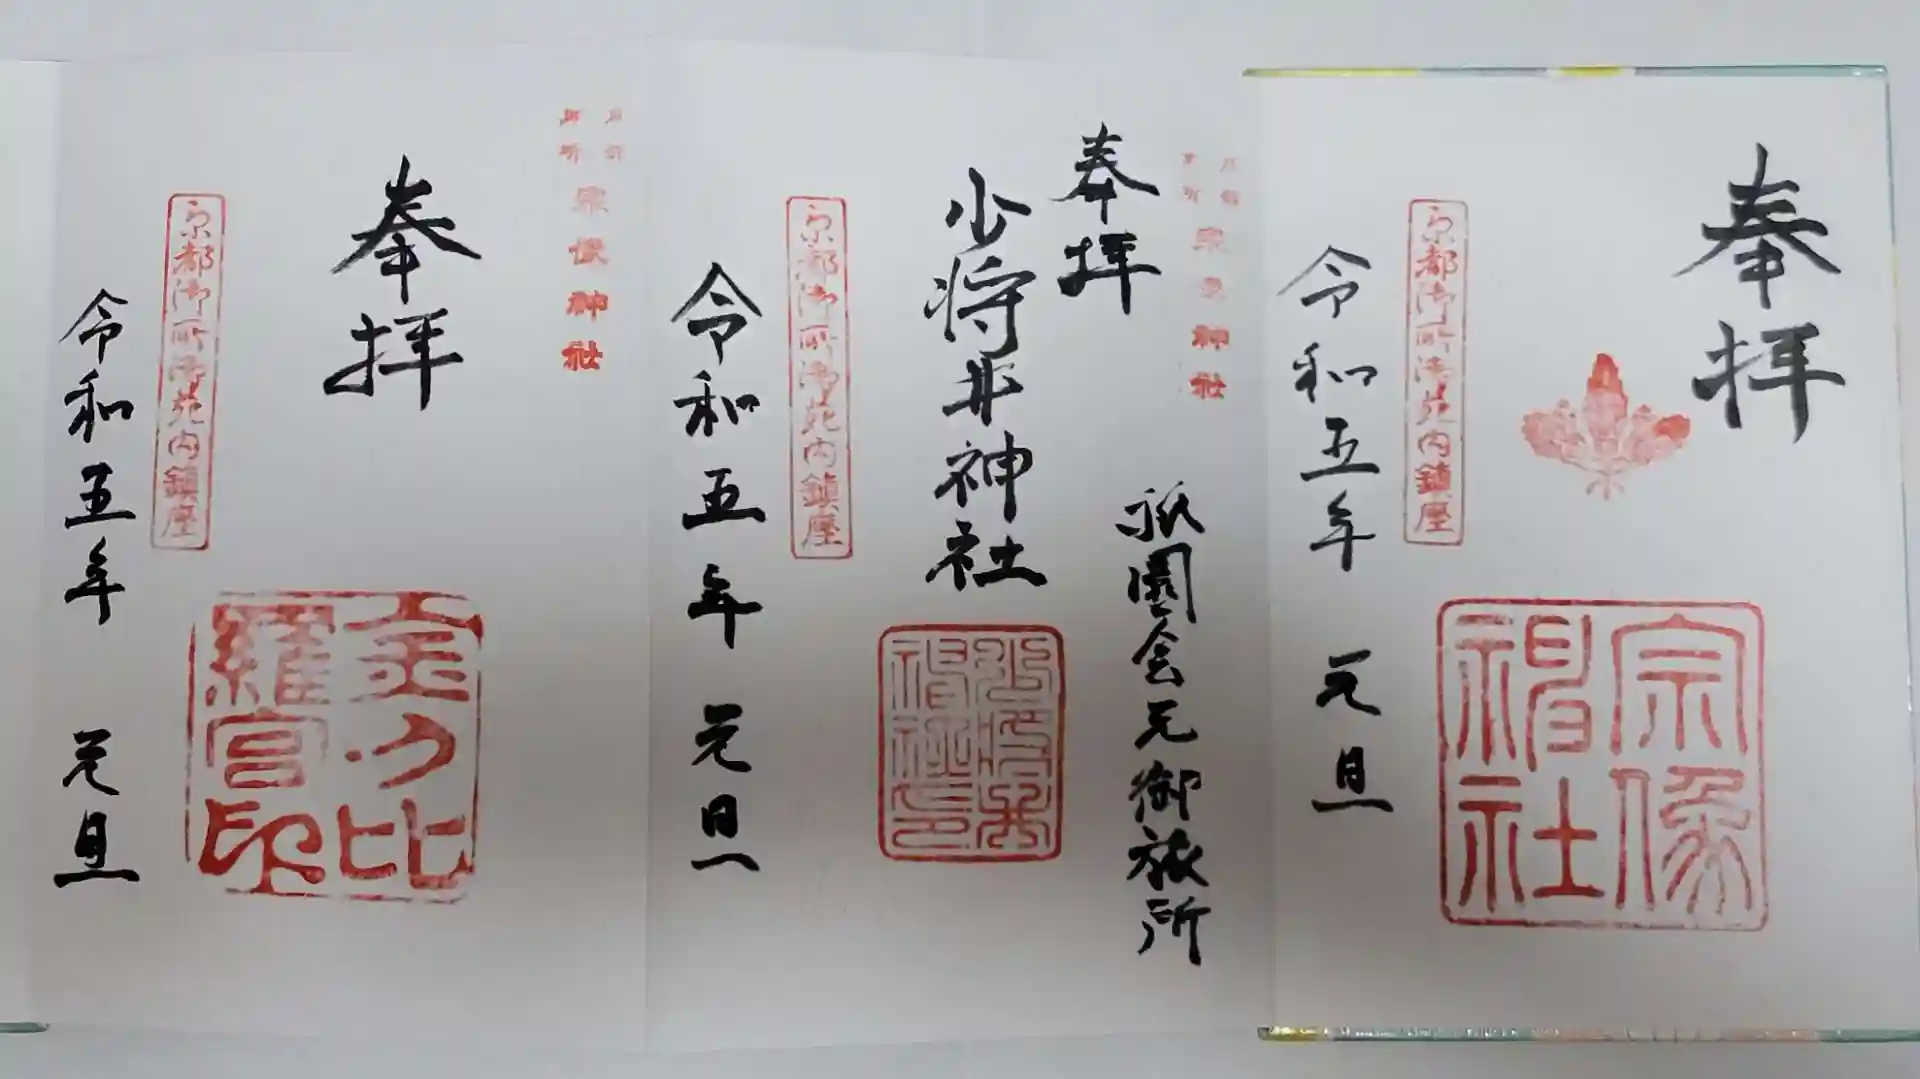 奉拝
宗像神社
京都御所御苑内鎮座
令和五年 元旦
宗像神社
奉拝
祇園会元御旅所
少将井神社
少将井神社印
京都御所御苑内鎮座
令和五年 元旦
宗像神社
奉拝
金刀比羅宮印
京都御所御苑内鎮座
令和五年 元旦